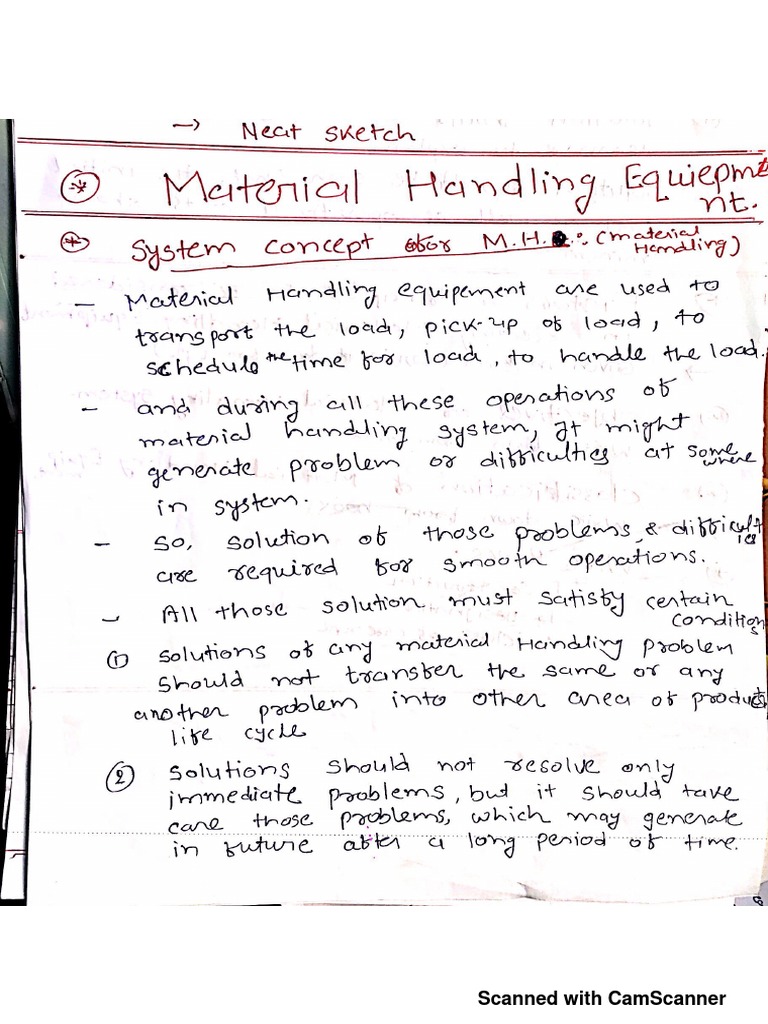 → Neat sketch
Material Handling Equiepme
nt.
System concept for M.H. : (material
Handling)
- Material Handling equipement are used to
transport the load, pick-up of load, to
schedule the time for load, to handle the load.
- and during all these operations of
material handling system, It might
generate problem or difficulties at some where
in system.
- so, solution of those problems & difficult ies
are required for smooth operations.
- All those solution must satisfy certain
condition s
① solutions of any material Handling problem
should not transfer the same or any
another problem into other area of product
life cycle
② solutions should not resolve only
immediate problems, but it should take
care those problems, which may generate
in future after a long period of time.
8
Scanned with CamScanner